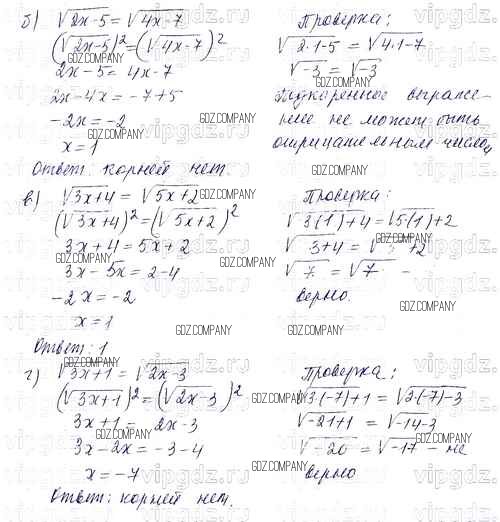 б) √2x-5 = √4x-7
(√2x-5)² = (√4x-7)²
2x-5 = 4x-7
2x-4x = -7+5
-2x = -2
x = 1
Ответ: корней нет.
Проверка:
√2·1-5 = √4·1-7
√-3 = √-3
Подкоренное выраже-
ние не может быть
отрицательным числом
в) √3x+4 = √5x+2
(√3x+4)² = (√5x+2)²
3x+4 = 5x+2
3x-5x = 2-4
-2x = -2
x = 1
Ответ: 1
Проверка:
√3(1)+4 = √5(1)+2
√3+4 = √5+2
√7 = √7 -
верно.
г) √3x+1 = √2x-3
(√3x+1)² = (√2x-3)²
3x+1 = 2x-3
3x-2x = -3-4
x = -7
Ответ: корней нет.
Проверка:
√3·(-7)+1 = √2·(-7)-3
√-21+1 = √-14-3
√-20 = √-17 - не
верно
GDZ.COMPANY
vipgdz.ru